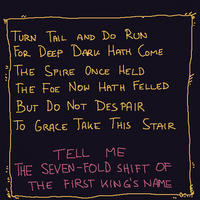 Turn Tail and Do Run
For Deep Dark Hath Come
The Spire Once Held
The Foe Now Hath Felled
But Do Not Despair
To Grace Take This Stair
Tell Me
The Seven-Fold Shift of
The First King's Name